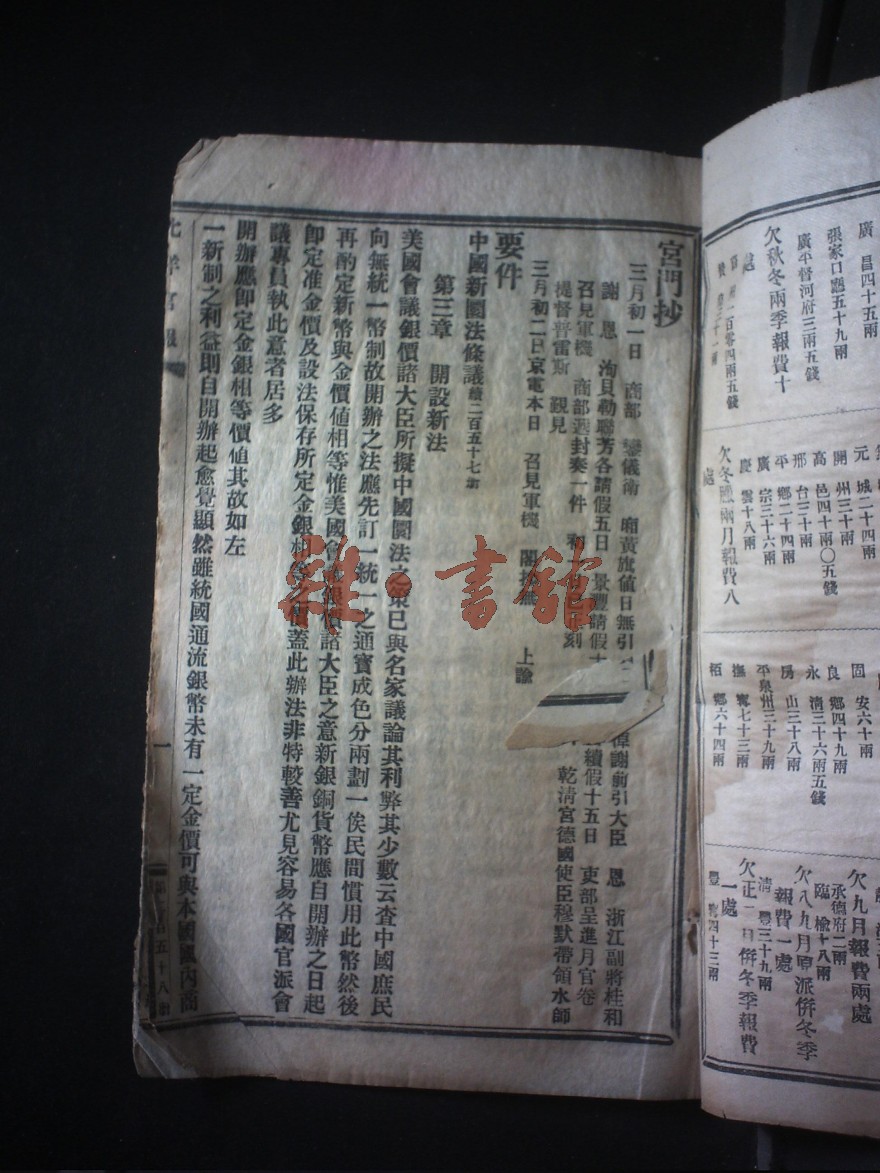 廣 昌四十五兩
張家口廳五十九兩
廣平督河府三兩五錢
欠秋冬兩季報費十
處
二百零四兩五錢
三十一兩
元 城二十四兩
開 州三十兩
高 邑四十兩〇五錢
邢 台三十兩
平 鄉二十四兩
廣 宗三十六兩
慶 雲十八兩
欠冬臘兩月報費八
處
固 安六十兩
良 鄉四十九兩
永 清三十六兩五錢
房 山三十八兩
平泉州三十九兩
撫 寗七十三兩
栢 鄉六十四兩
欠九月報費兩處
承德府二兩
臨 榆十八兩
欠八九月
派併冬季
報費一處
清 豐三十九兩
欠正二月併冬季報費
一處
豐 四十三兩
宮門抄
三月初一日 商部 鑾儀衛 廂黃旗值日無引
謝前引大臣 恩 浙江副將桂和
謝 恩 洵貝勒聯芳各請假五日 景豐請假十
續假十五日 吏部呈進月官卷
召見軍機 商部遞封奏一件
刻
乾清宮德國使臣穆默帶領水師
提督普雷斯 覲見
三月初二日京電本日 召見軍機 閣抄無 上諭
要件
中國新圜法條議續二百五十七冊
第三章 開設新法
美國會議銀價諸大臣所擬中國圜法之策已與名家議論其利弊其少數云查中國庶民
向無統一幣制故開辦之法應先訂一統一之通寶成色分兩劃一俟民間慣用此幣然後
再酌定新幣與金價值相等惟美國會議銀價諸大臣之意新銀銅貨幣應自開辦之日起
即定准金價及設法保存所定金銀相等之價蓋此辦法非特較善尤見容易各國官派會
議專員執此意者居多
開辦應即定金銀相等價值其故如左
一新制之利益則自開辦起愈覺顯然雖統國通流銀幣未有一定金價可與本國國內商
北洋官報
一
第二百五十八冊
雜·書館